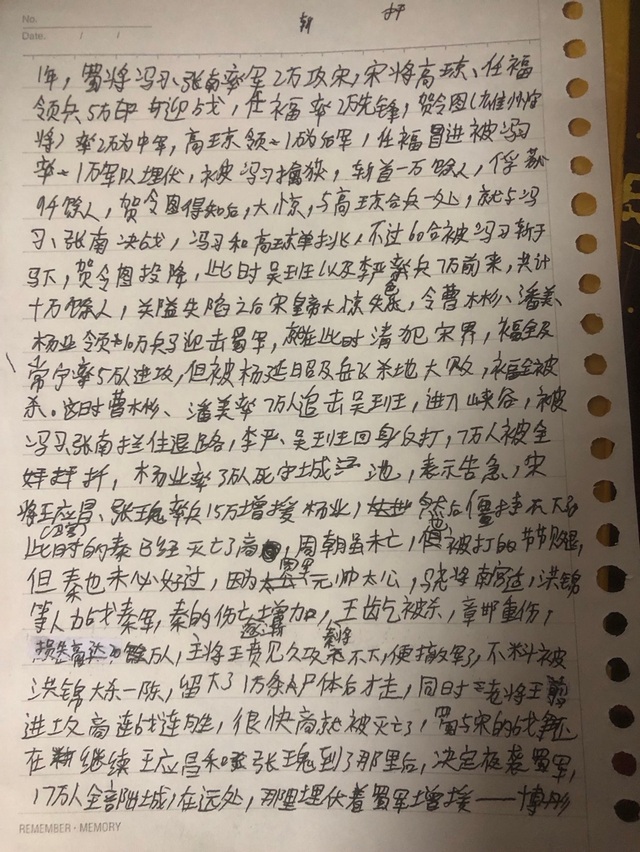 No.
Date. / /
1年，蜀将冯习、张南率军2万攻宋，宋将高琼、任福
领兵5万即奇迎战，任福率2万先锋，贺令图（雄州守
将）率2万为中军，高琼领1万为后军，任福冒进被冯习
率1万军队埋伏，被冯习擒族，斩首一万馀人，俘获
9千馀人，贺令图得知后，大惊，与高琼合兵一处，就与冯
习、张南决战，冯习和高琼单挑，不过60合被冯习斩于
马下，贺令图投降，此时吴班以及李严率兵7万前来，共计
十万馀人，关隘失陷之后宋皇帝大惊失色，令曹彬、潘美、
杨业领10万兵马迎击蜀军，就在此时清犯宋界，福全及
常宁率5万人进攻，但被杨延昭及岳飞杀地大败，福全被
杀。这时曹彬、潘美率7万人追击吴班，进入峡谷，被
冯习、张南拦住退路，李严、吴班回身反打，7万人被全
歼，杨业率3万人死守城池，表示告急，宋
将王应昌、张瑰率兵15万增援杨业，然后僵持不下
此时的秦已经灭亡了商，周朝虽未亡，但也被打的节节败退，
但秦也未必好过，因为元帅太公，骁将南宫适，洪锦
等人力战秦军，秦的伤亡增加，王龁被杀，章邯重伤，
损失高达万馀人，主将王贲见久攻不下，便撤军了，不料被
洪锦大杀一阵，留下了1万条尸体后才走，同时老将王翦
进攻商连战连胜，很快商就被灭亡了，蜀与宋的战争还
在继续王应昌和张瑰到了那里后，决定夜袭蜀军，
17万人全部出城，在远处，那里埋伏着蜀军增援——傅彤
REMEMBER · MEMORY